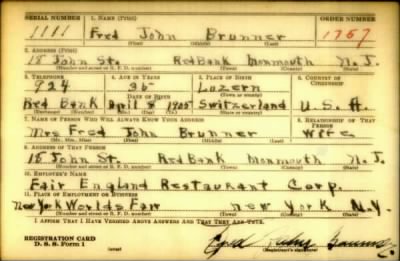 SERIAL NUMBER 1. NAME (Print) ORDER NUMBER
1111 Fred John Brunner 1767
(First) (Middle) (Last)
2. ADDRESS (Print)
15 John St. Red Bank Monmouth N.J.
(Number and street or R. F. D. number) (Town) (County) (State)
3. TELEPHONE 4. AGE IN YEARS 5. PLACE OF BIRTH 6. COUNTRY OF CITIZENSHIP
924 35 Luzern
Red Bank April 8 1905 Switzerland U.S.A.
7. NAME OF PERSON WHO WILL ALWAYS KNOW YOUR ADDRESS 8. RELATIONSHIP OF THAT PERSON
Mrs Fred John Brunner Wife
9. ADDRESS OF THAT PERSON
15 John St. Red Bank Monmouth N.J.
(Number and street or R. F. D. number) (Town) (County) (State)
10. EMPLOYER'S NAME
Fair England Restaurant Corp.
11. PLACE OF EMPLOYMENT OR BUSINESS
New York Worlds Fair New York N.Y.
(Number and street or R. F. D. number) (Town) (County) (State)
I AFFIRM THAT I HAVE VERIFIED ABOVE ANSWERS AND THAT THEY ARE TRUE.
REGISTRATION CARD
D. S. S. Form 1 (over) (Registrant's signature)